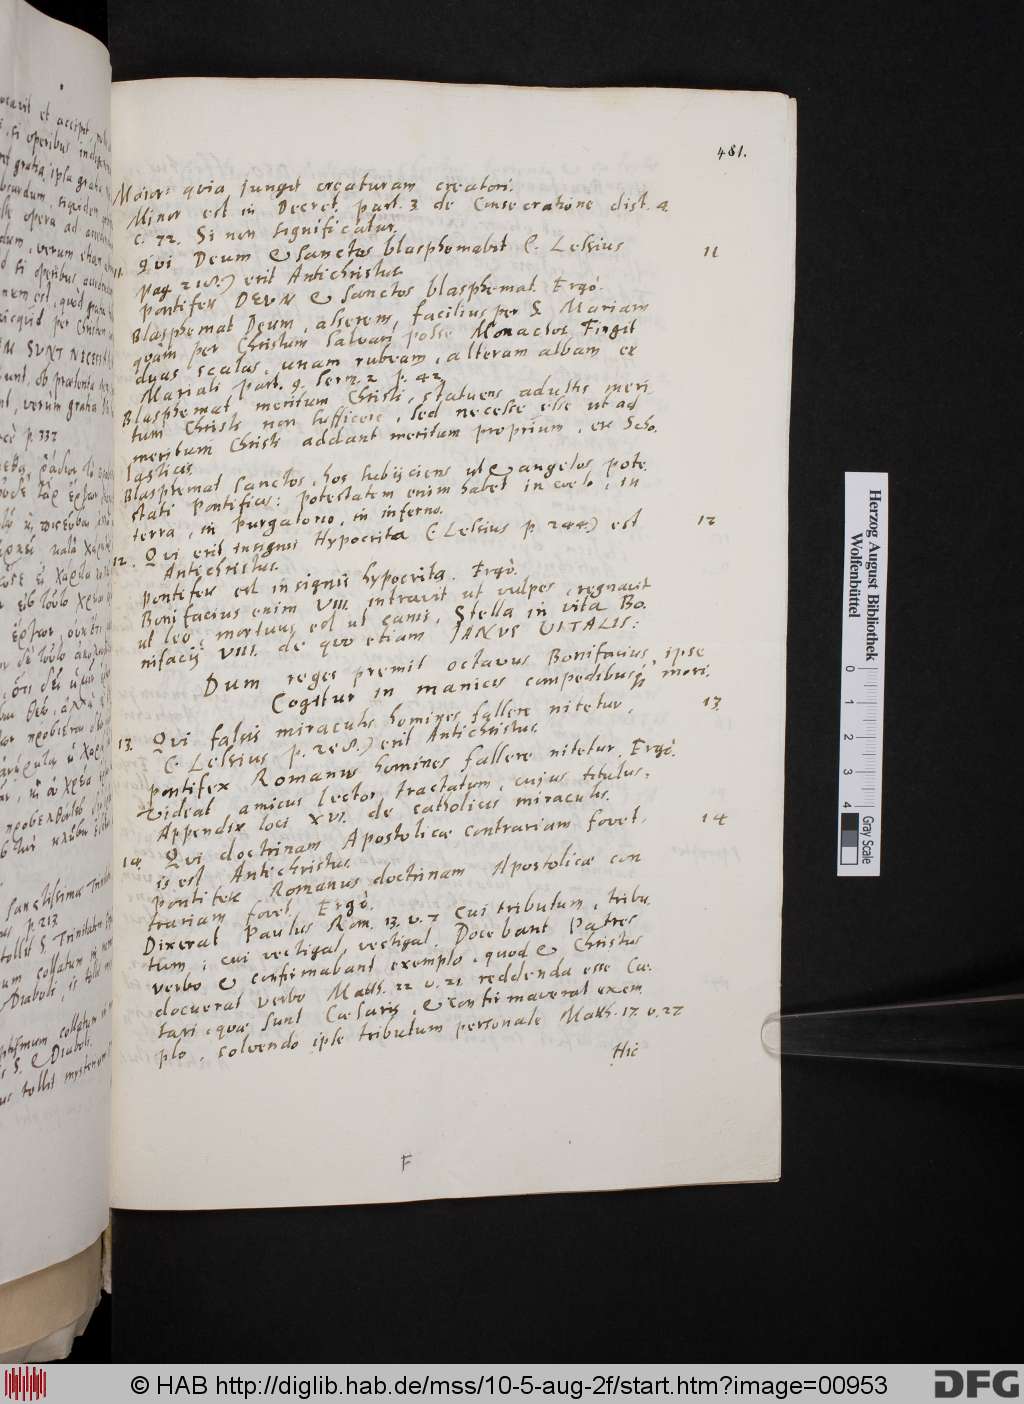 481.
Maior: quia jungit creaturam creatori.
Minor est in Decret. part. 3 de Consecratione dist. 4.
c. 72. Si non significatur.
11. Qui Deum & Sanctos blasphemabit (: Lessius 11
pag 218.) erit Antichristus.
Pontifex DEUM & Sanctos blasphemat. Ergò.
Blasphemat Deum, asserens, facilius per S. Mariam
quàm per Christum salvari posse Monachos. Fingit
duas scalas, unam rubram, alteram albam ex
Mariali part. 9. serm. 2 p. 42.
Blasphemat meritum Christi, statuens adultis meri-
tum Christi non sufficere, sed necesse esse ut ad
meritum Christi addant meritum proprium, ex Scho-
lasticis.
Blasphemat Sanctos, hos subijciens ut & angelos pote-
stati Pontificis: potestatem enim habet in coelo, in
terra, in Purgatorio, in inferno.
12. Qui erit insignis Hypocrita (: Lessius p. 244.) est 12
Antichristus.
Pontifex est insignis hypocrita. Ergò.
Bonifacius enim VIII. intravit ut vulpes, regnavit
ut leo, mortuus est ut canis, Stella in vita Bo-
nifacij VIII. de quo etiam JANUS VITALIS:
Dum reges premit octavus Bonifacius ipse
Cogitur in manicis compedibusq; mori.
13. Qui falsis miraculis homines fallere nitetur, 13
(: Lessius p. 218.) erit Antichristus.
Pontifex Romanus homines fallere nitetur. Ergò.
Videat amicus lector tractatum, cujus titulus,
Appendix loci XVI. de catholicis miraculis.
14. Qui doctrinam Apostolicae contrariam fovet, 14
is est Antichristus.
Pontifex Romanus doctrinam Apostolicae con-
trariam fovet. Ergò.
Dixerat Paulus Rom. 13. v. 7 cui tributum, tribu-
tum; cui vectigal, vectigal. Docebant Patres
verbo & confirmabant exemplo, quod & Christus
docuerat verbo Matth. 22 v. 21 reddenda esse Cae-
sari, quae sunt Caesaris, & confirmaverat exem-
plo, solvendo ipse tributum personale Matth. 17. v. 27
Hic
F
Herzog August Bibliothek
Wolfenbüttel
0 1 2 3 4
Gray Scale
© HAB http://diglib.hab.de/mss/10-5-aug-2f/start.htm?image=00953
DFG